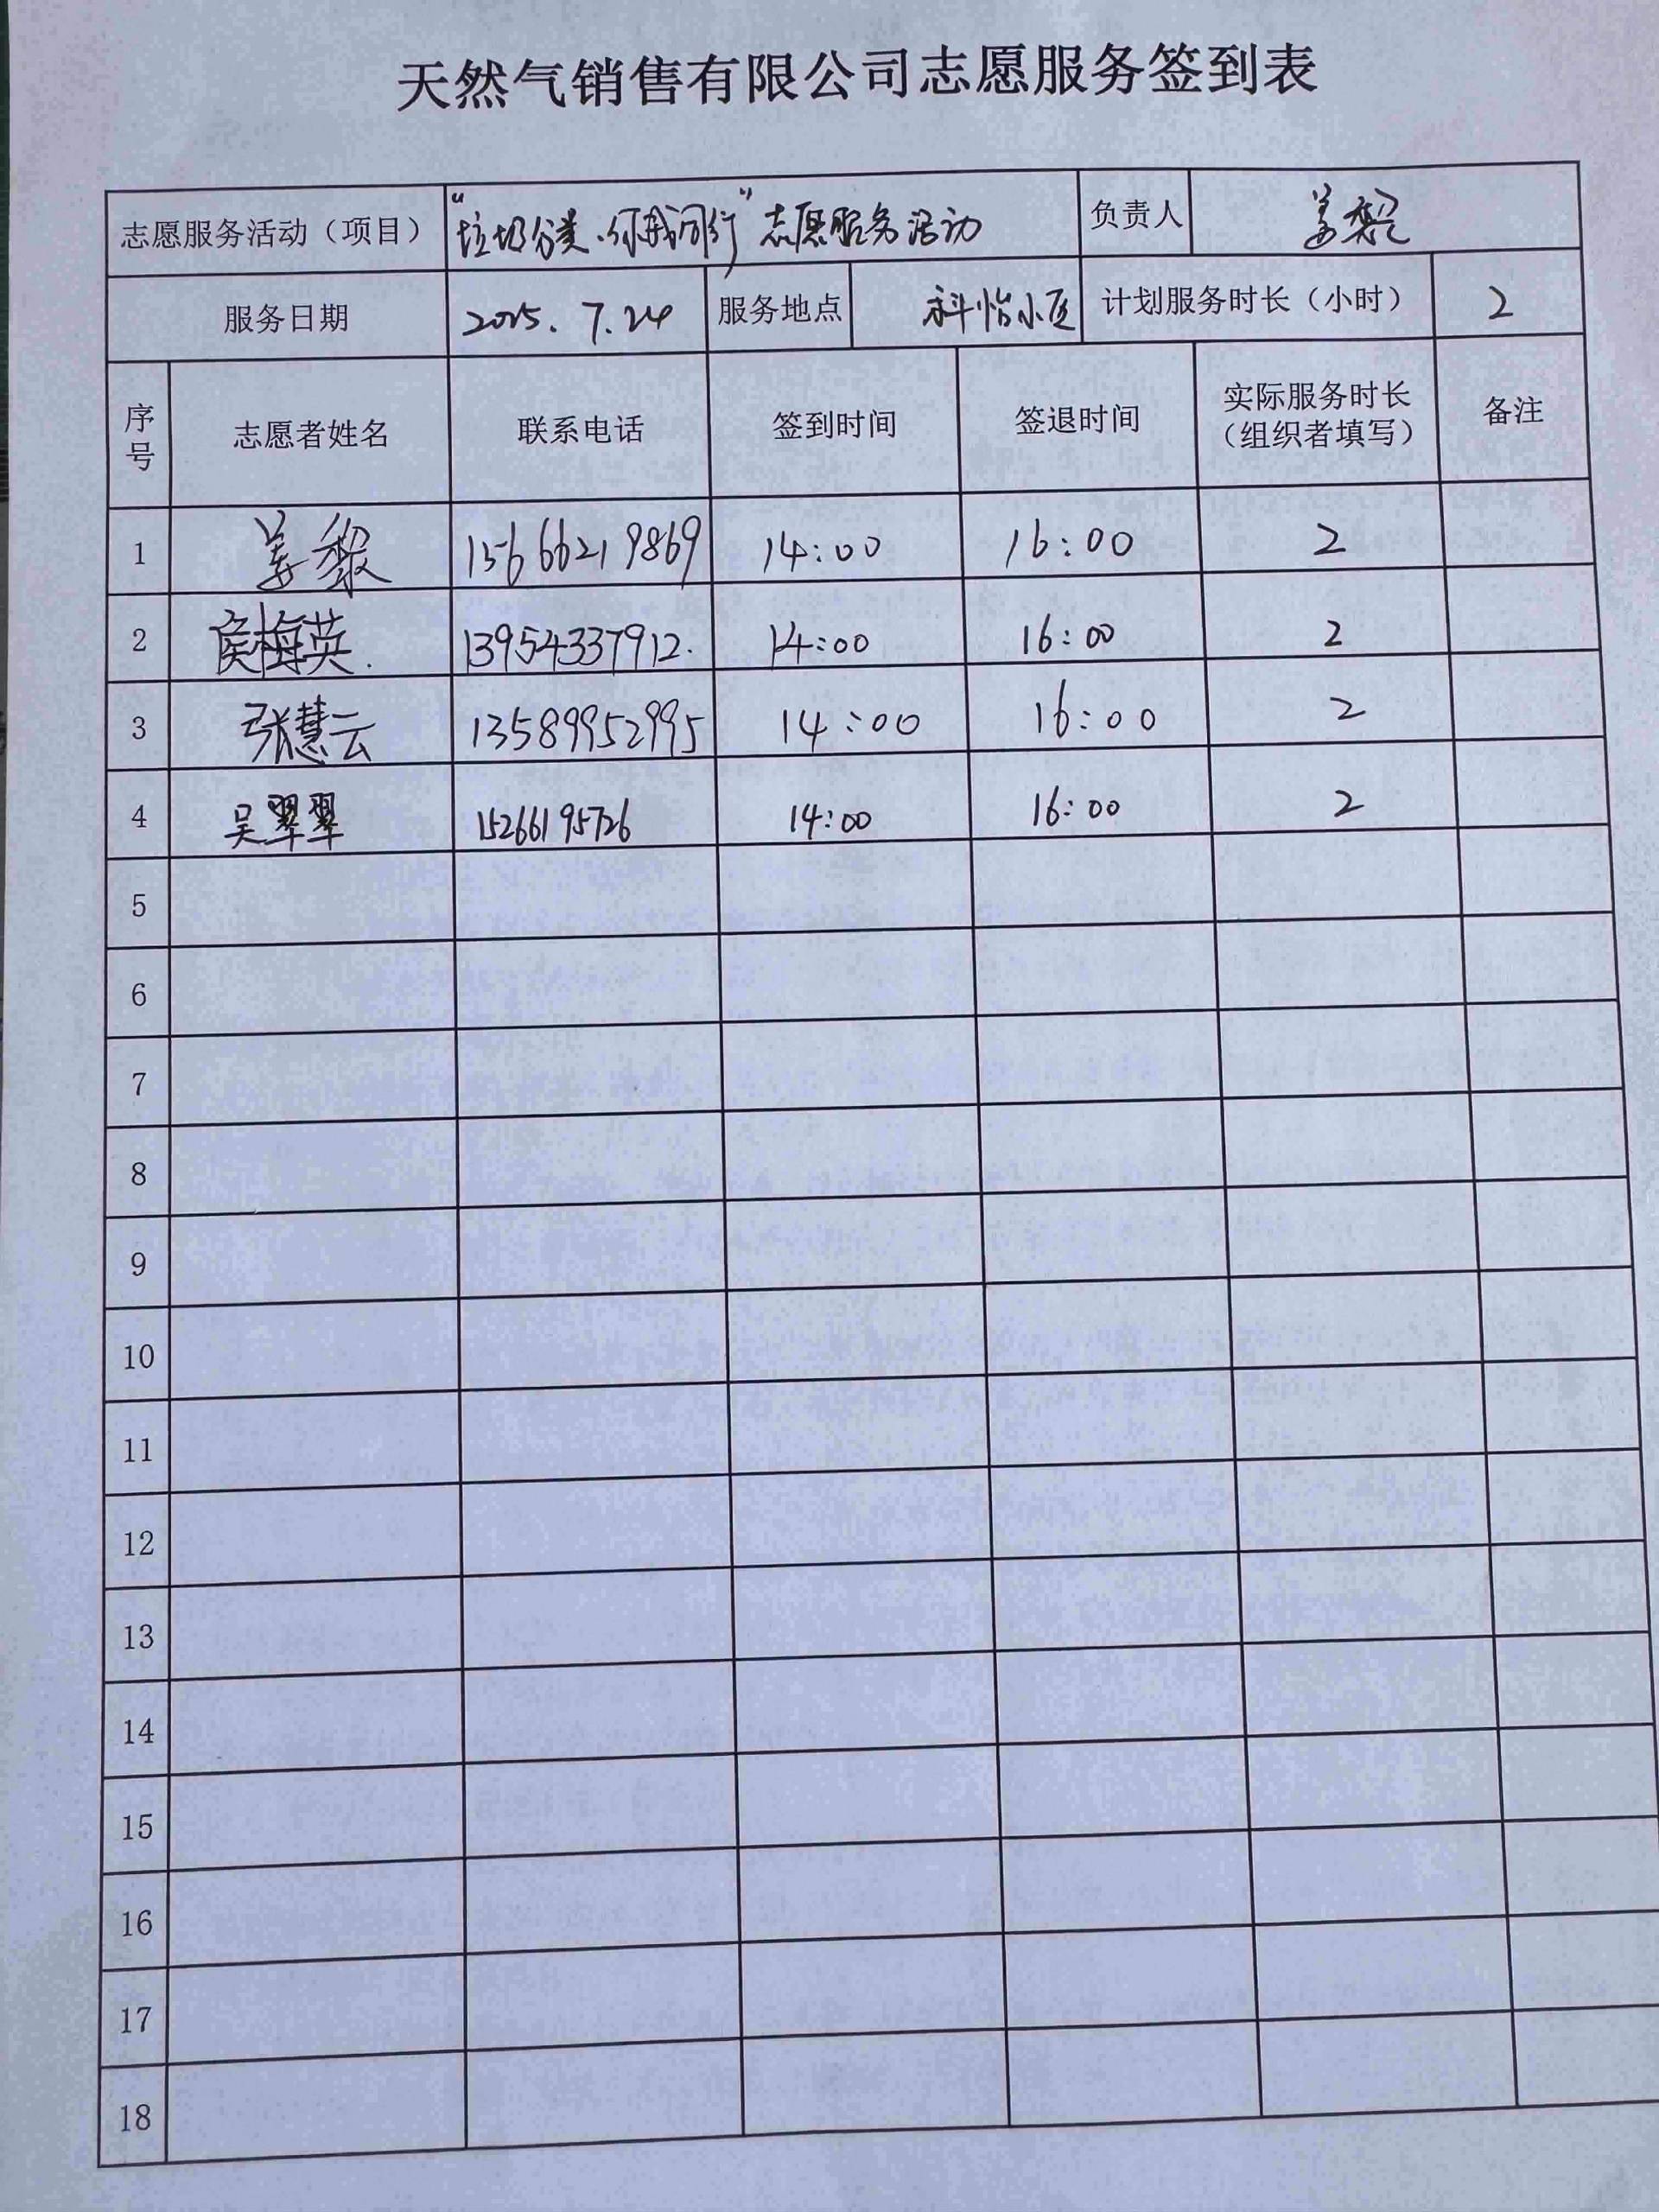 天然气销售有限公司志愿服务签到表
志愿服务活动（项目） “垃圾分类、你我同行”志愿服务活动 负责人 姜黎
服务日期 2025.7.24 服务地点 科怡小区 计划服务时长（小时） 2
序号 志愿者姓名 联系电话 签到时间 签退时间 实际服务时长（组织者填写） 备注
1 姜黎 15666219869 14:00 16:00 2
2 侯梅英. 13954337912. 14:00 16:00 2
3 张慧云 13589952995 14:00 16:00 2
4 吴翠翠 15266195726 14:00 16:00 2
5
6
7
8
9
10
11
12
13
14
15
16
17
18